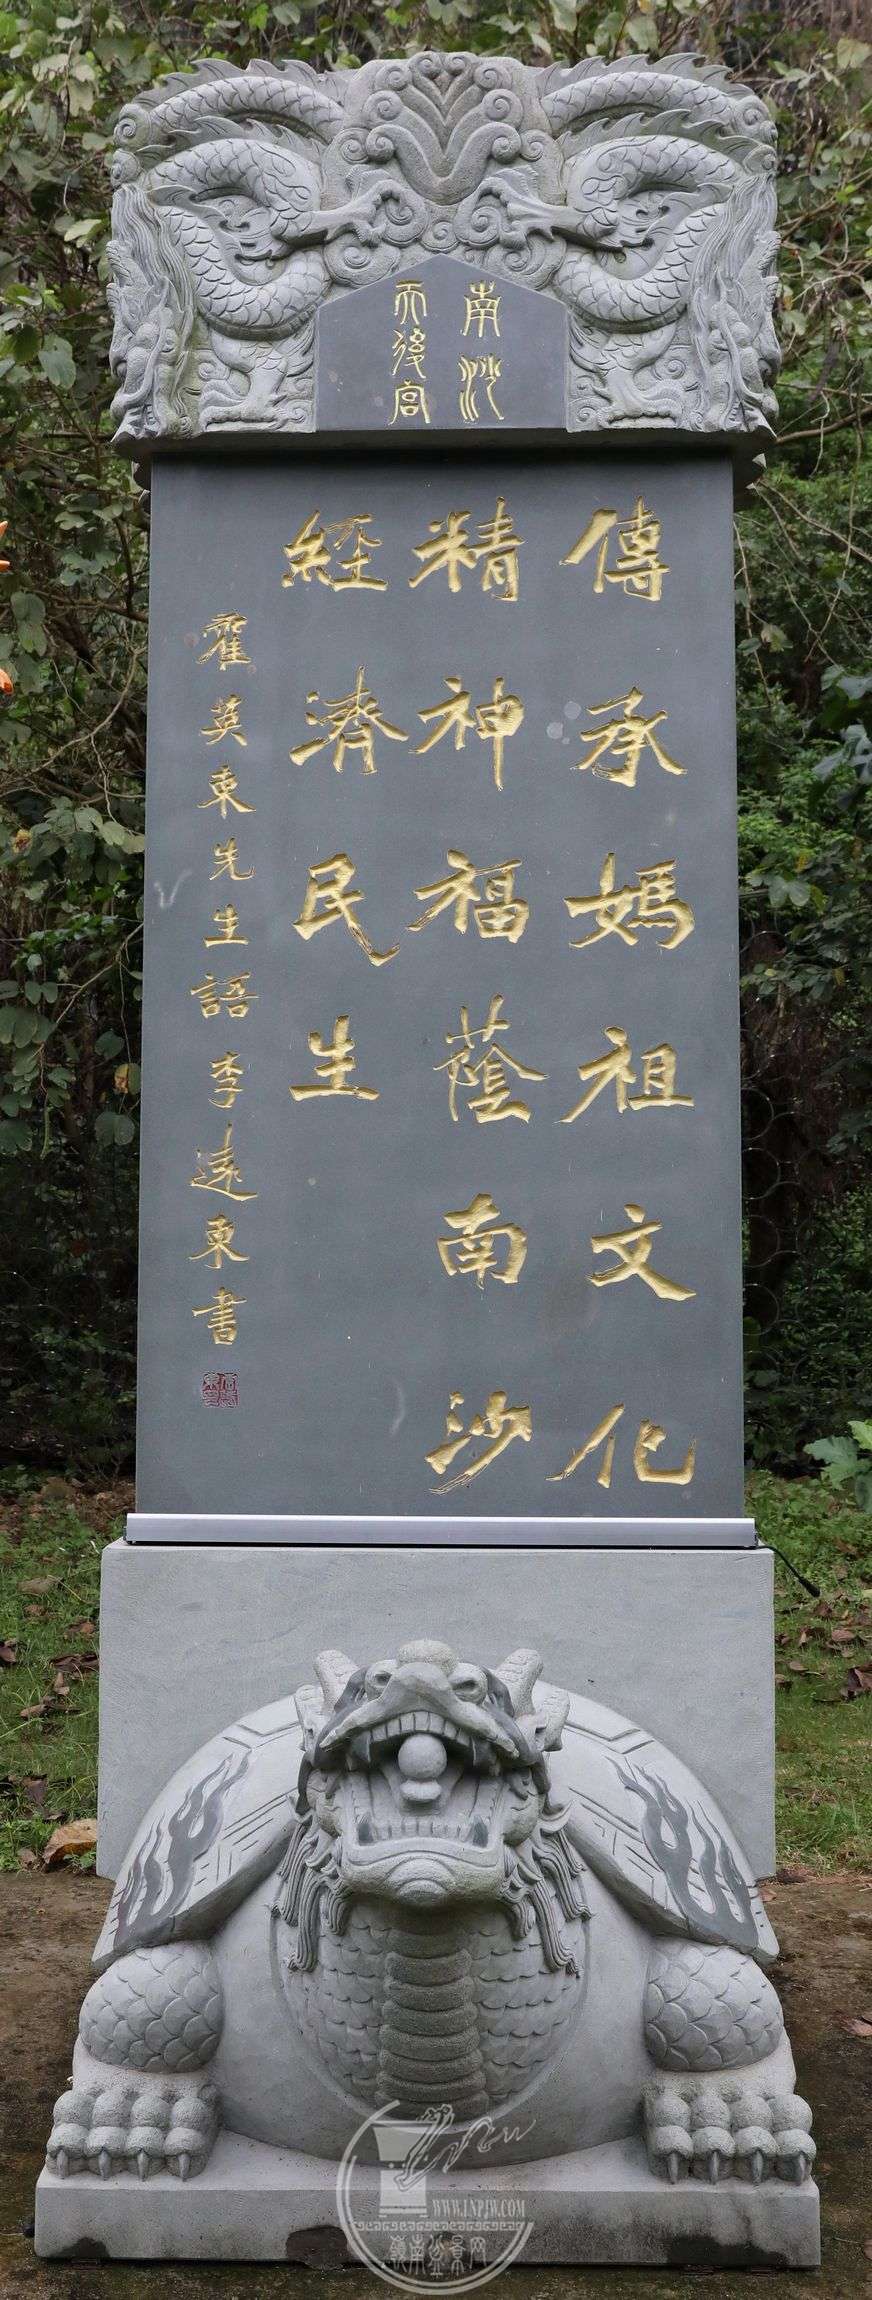 南沙
天後宮
傳承媽祖文化
精神福蔭南沙
經濟民生
霍英東先生語 李遠東書
WWW.LNPJW.COM
嶺南盆景网